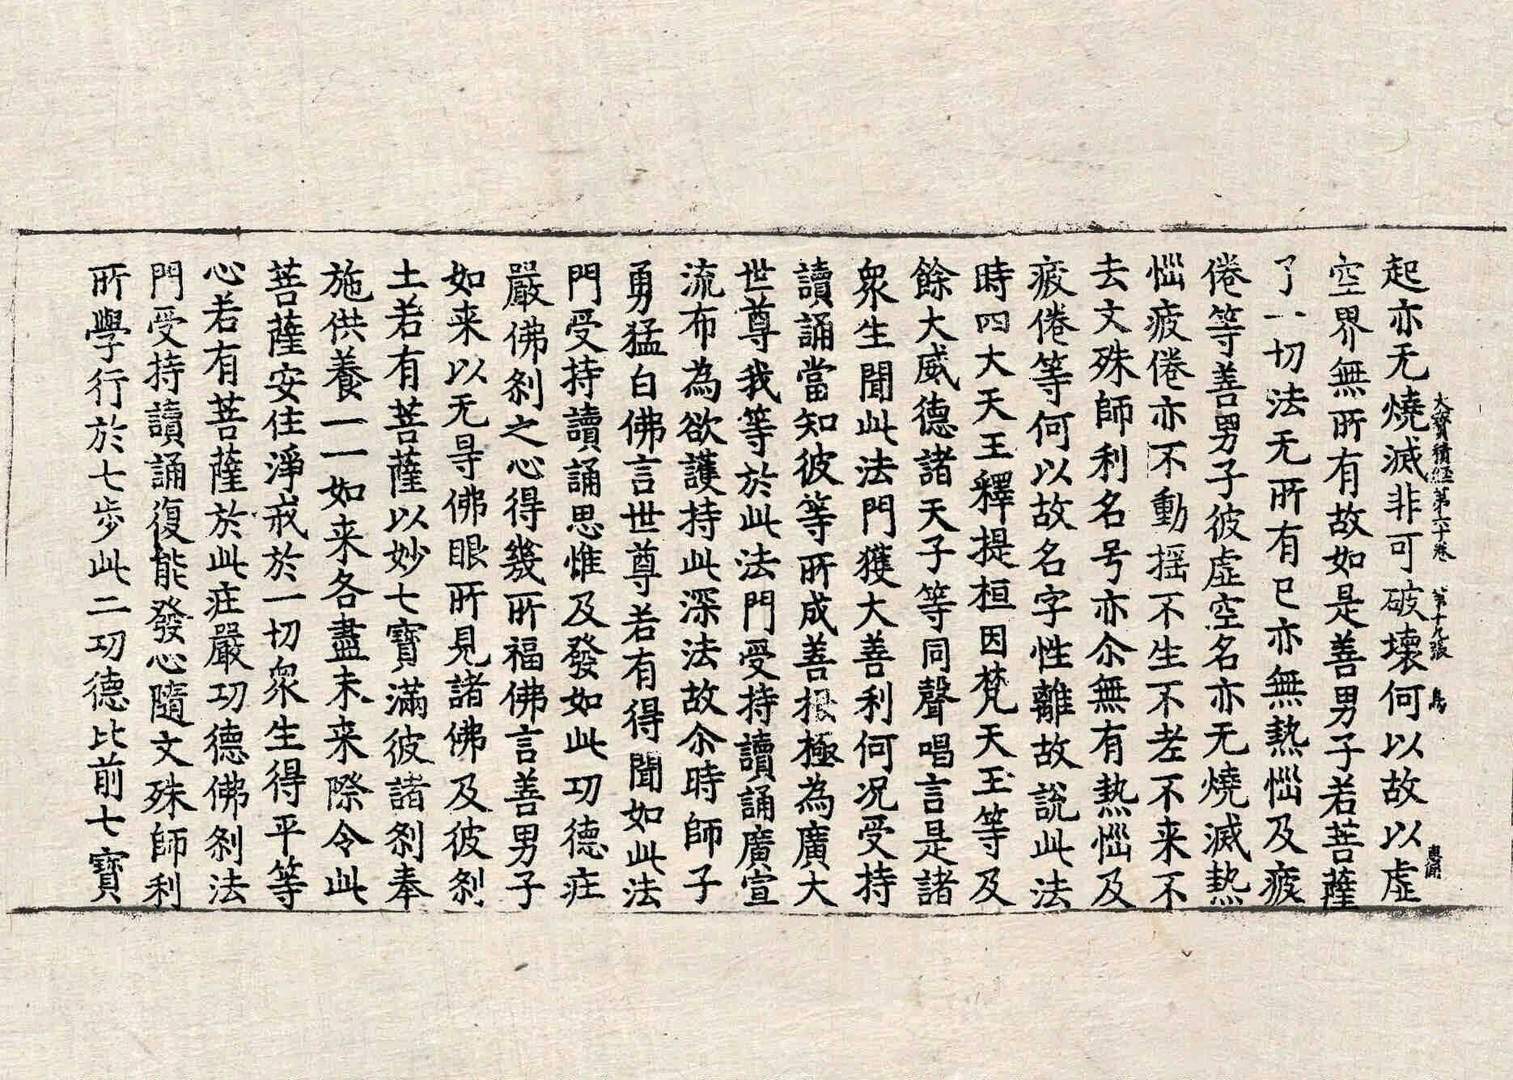 大寶積經第六十卷 第十九張 鳥
起亦无燒滅非可破壞何以故以虛
空界無所有故如是善男子若菩薩
了一切法无所有已亦無熱惱及疲
倦等善男子彼虛空名亦无燒滅熱
惱疲倦亦不動搖不生不老不来不
去文殊師利名号亦尒無有熱惱及
疲倦等何以故名字性離故說此法
時四大天王釋提桓因梵天王等及
餘大威德諸天子等同聲唱言是諸
眾生聞此法門獲大善利何况受持
讀誦當知彼等所成善根極為廣大
世尊我等於此法門受持讀誦廣宣
流布為欲護持此深法故尒時師子
勇猛白佛言世尊若有得聞如此法
門受持讀誦思惟及發如此功德疘
嚴佛剎之心得幾所福佛言善男子
如来以无㝵佛眼所見諸佛及彼剎
土若有菩薩以妙七寶滿彼諸剎奉
施供養一一如来各盡未来際令此
菩薩安住淨戒於一切眾生得平等
心若有菩薩於此疘嚴功德佛剎法
門受持讀誦復能發心隨文殊師利
所學行於七步此二功德比前七寶